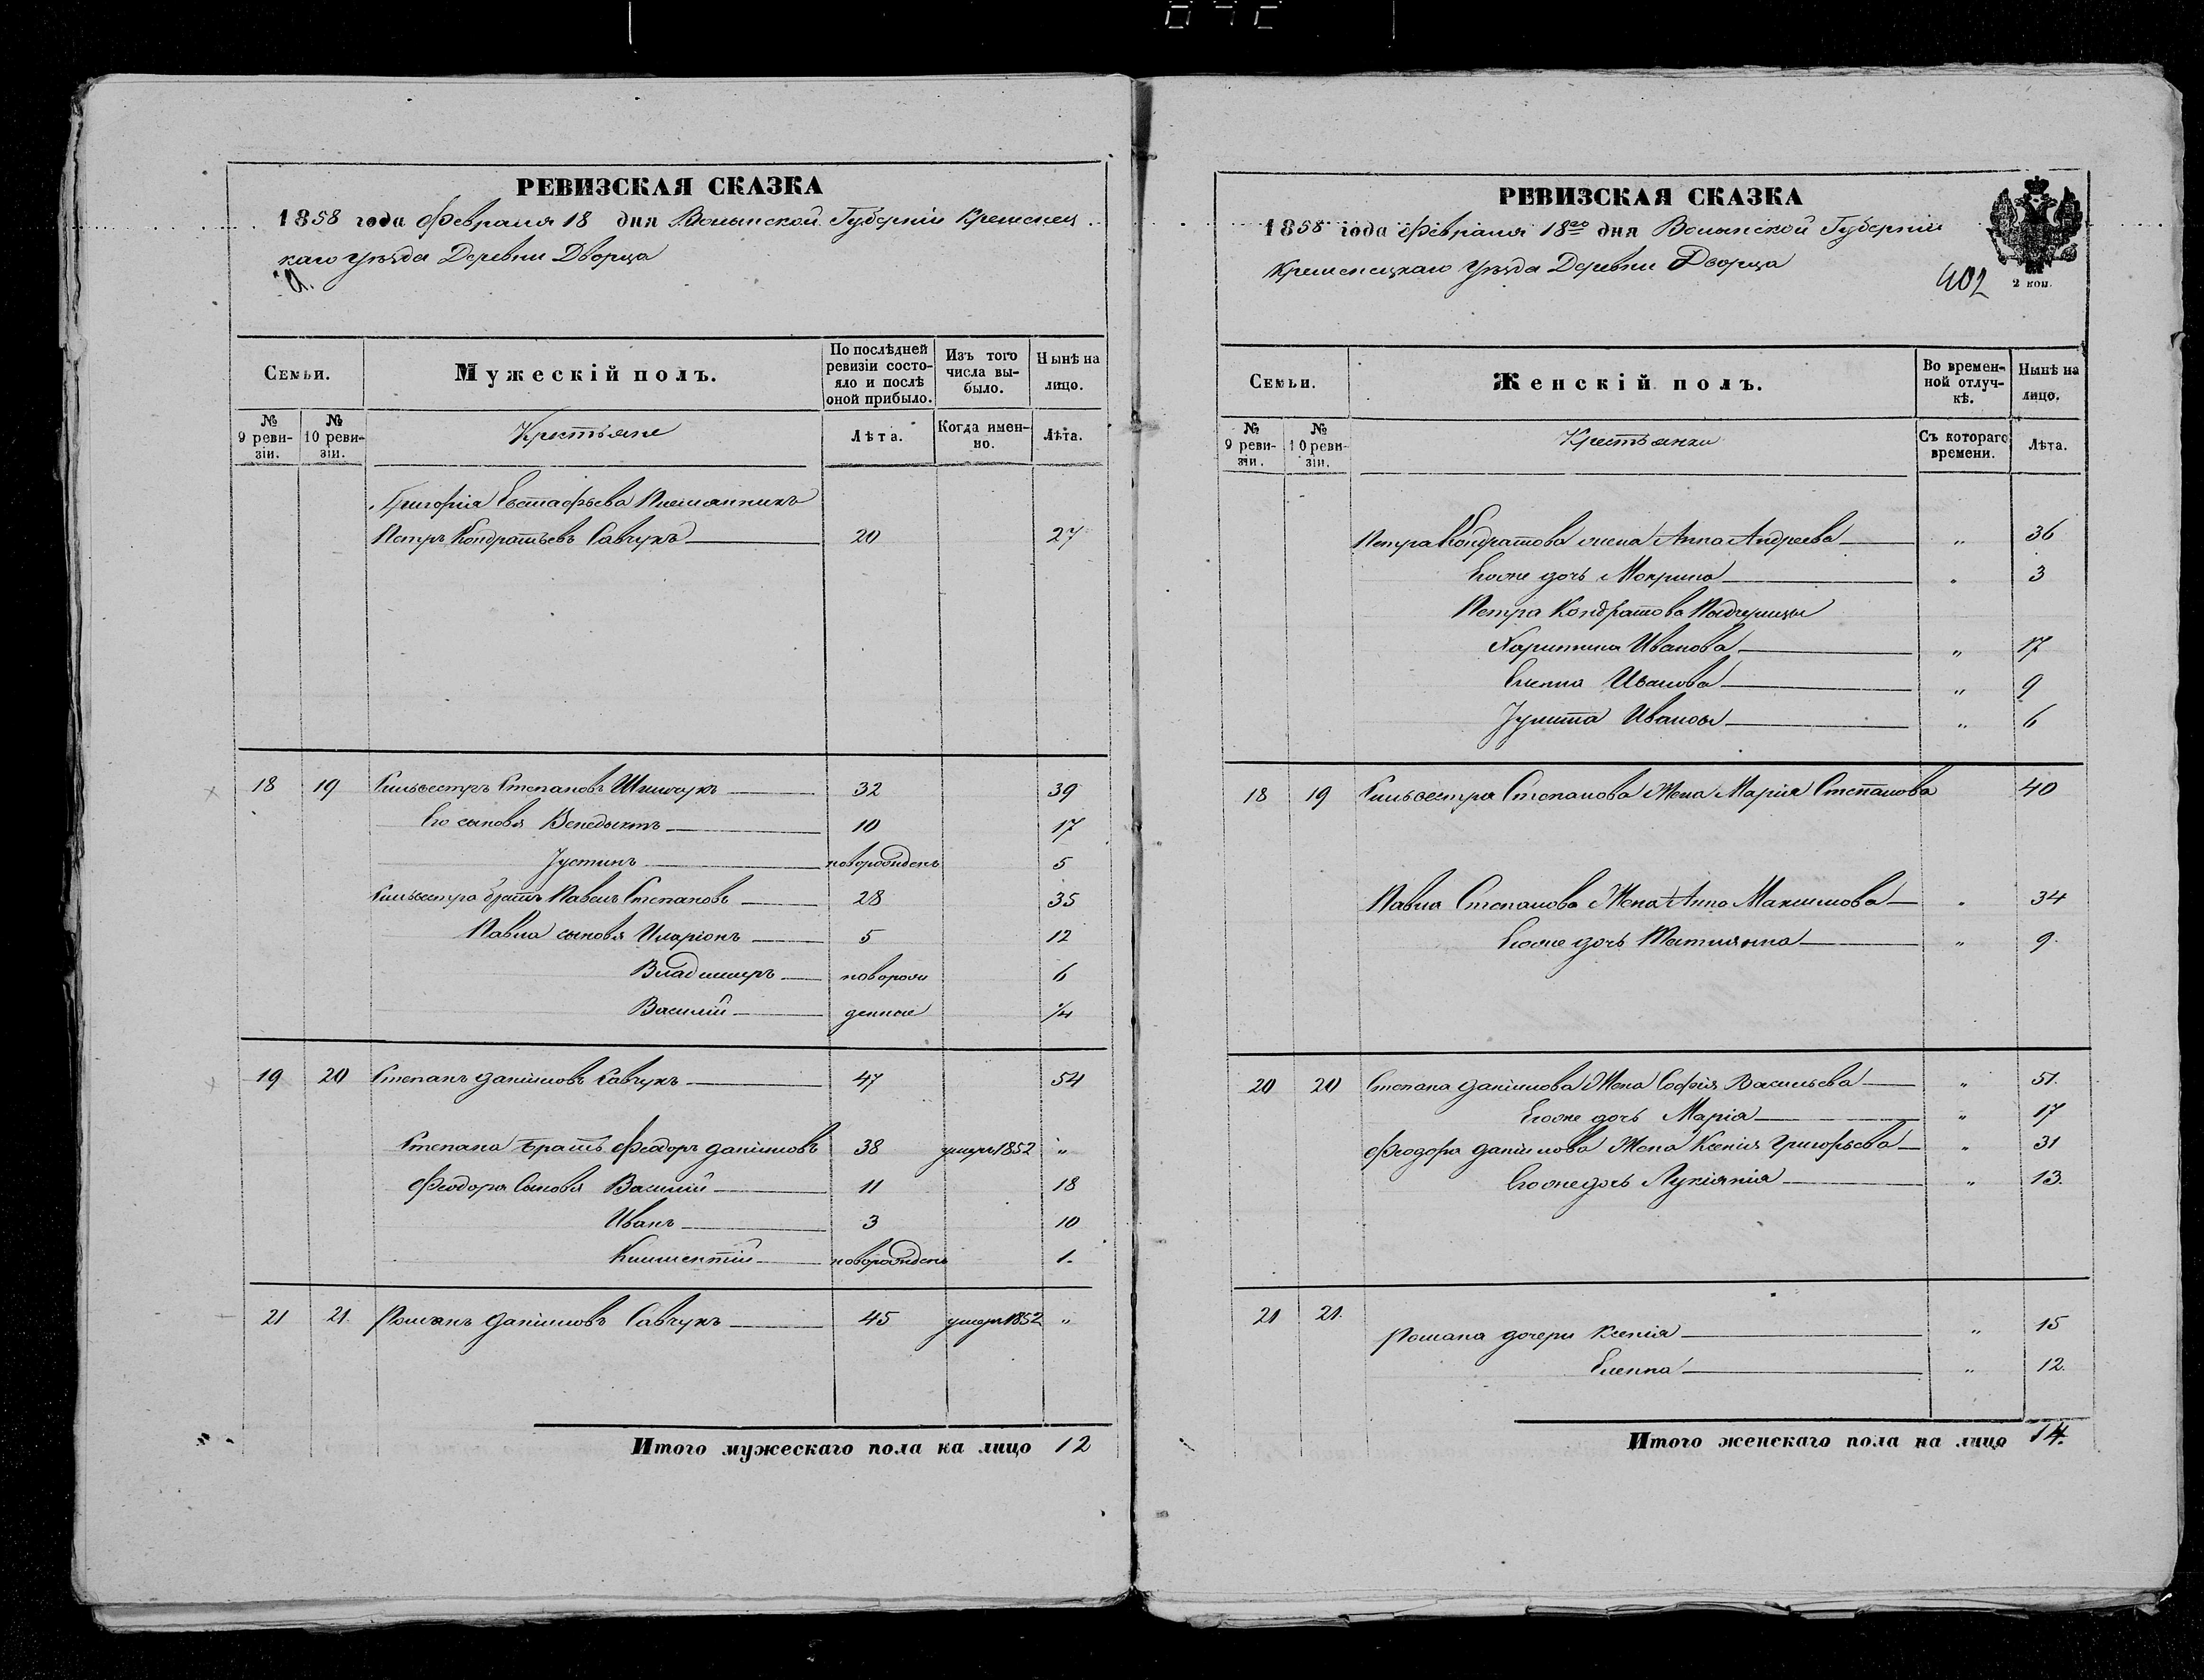 РЕВИЗСКАЯ СКАЗКА
1858 года Февраля 18 дня Волынской Губерніи Кременец
каго уѣзда Деревни Дворца
Семьи.
Мужескій полъ.
По послѣдней ревизіи состояло и послѣ оной прибыло.
Изъ того числа выбыло.
Нынѣ на лицо.
№ 9 ревизіи.
№ 10 ревизіи.
Крестьяне
Лѣта.
Когда именно.
Лѣта.
Григорія Евстафьева Племянникъ
Петръ Кондратьевъ Савчукъ 20 27
18 19 Сильвестръ Степановъ 32 39
Его сыновя Венедыктъ 10 17
Јустинъ новорожденъ 5
Сильвестра братъ Павелъ Степановъ 28 35
Павла сыновя Иларіонъ 5 12
Владимиръ новорож 6
Василій денные 1/4
19 20 Степанъ Даніиловъ Савчукъ 47 54
Степана братъ Феодоръ Даніиловъ 38 умеръ 1852 "
Феодора Сыновя Василій 11 18
Иванъ 3 10
Климентій новорожденъ 1.
21 21. Романъ Даніиловъ Савчукъ 45 умеръ 1852 "
Итого мужескаго пола на лицо 12
РЕВИЗСКАЯ СКАЗКА
1858 года Февраля 18го дня Волынской Губерніи
Кременецкаго уѣзда Деревни Дворца
402
2 коп.
Семьи.
Женскій полъ.
Во временной отлучкѣ.
Нынѣ на лицо.
№ 9 ревизіи.
№ 10 ревизіи.
Крестьянки
Съ котораго времени.
Лѣта.
Петра Кондратова жена Анна Андреева " 36
Егоже дочь Мокрина " 3
Петра Кондратова Падчерицы
Харитина Иванова " 17
Еленна Иванова " 9
Јулитта Иванова " 6
18 19 Сильвестра Степанова Жена Марія Степанова 40
Павла Степанова Жена Анна Максимова " 34
Егоже дочь Татиянна " 9.
20 20 Степана Даніилова Жена Софія Васильева " 51.
Егоже дочь Марія " 17
Феодора Даніилова Жена Ксенія Григорьева " 31
Егоже дочь Лукіянія " 13.
21 21. Романа дочери Ксенія " 15
Еленна " 12.
Итого женскаго пола на лицо 14.